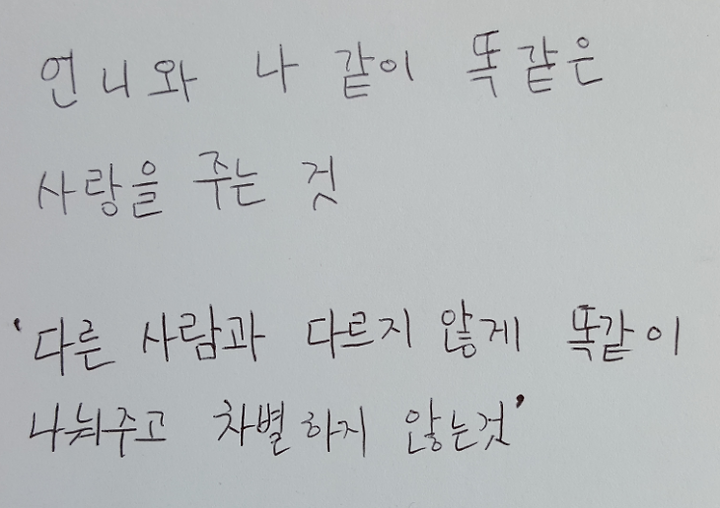 언니와 나 같이 똑같은
사랑을 주는 것
'다른 사람과 다르지 않게 똑같이
나눠주고 차별하지 않는것'